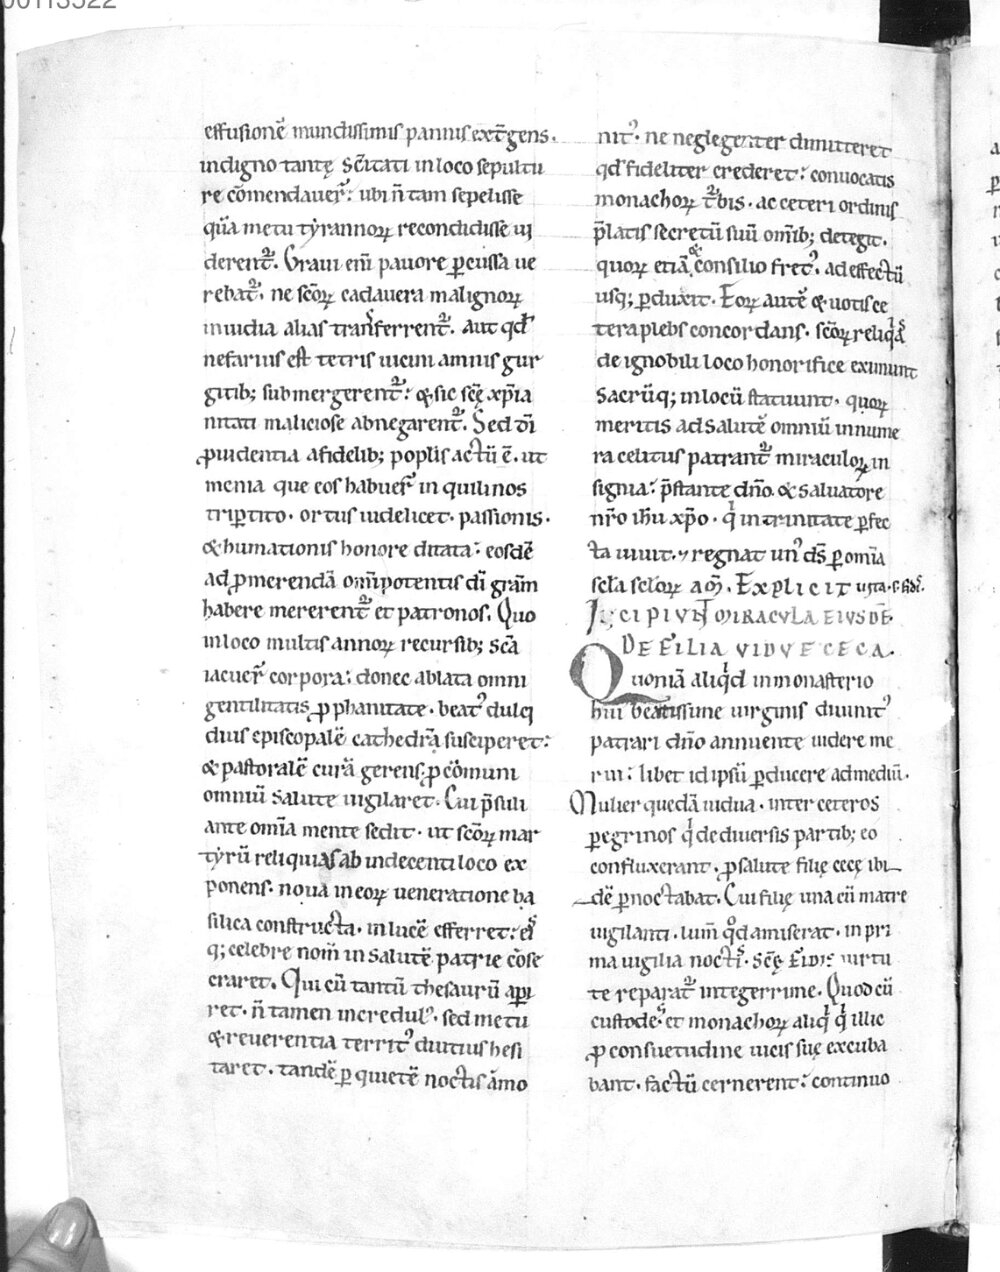 00113522
effusionē mundissimis pannis ext̄gens.
indigno tantę sc̄itati in loco sepultu
re cōmendauer̄: ubi n̄ tam sepelisse
quā metu tyrannoꝝ recondidisse ui
derent᷑. Graui eni᷑ pauore ꝑcussa ue
rebat᷑, ne sc̄oꝝ cadauera malignoꝝ
inuidia alias transferrent᷑. aut qd̄
nefarius est tetris uicini amnis gur
gitib; submergerent᷑: & sic sc̄ę xp̄ia
nitati maliciose abnegarent᷑. Sed di᷑
ꝓuidentia a fidelib; popl̄is actū ē. ut
menia que eos habuer᷑ in quilinos
triꝑtito. ortus uidelicet. passionis.
& humationis honore ditata: eosdē
ad ꝓmerendā om̄ipotentis di᷑ grām
habere mererent᷑ et patronos. Quo
in loco multis annoꝝ recursib; sc̄a
iacuer᷑ corpora: donec ablata omni
gentilitatis ꝓphanitate. beat᷒ dulci
dius episcopalē cathedrā susciperet:
& pastoralē curā gerens: ꝓ cōmuni
omniū salute uigilaret. Cui p̄suli
ante om̄ia mente sedit. ut sc̄oꝝ mar
tyrū reliquias ab indecenti loco ex
ponens. noua in eoꝝ ueneratione ba
silica constructa. in lucē efferret: eis
q; celebre nom̄ in salutē patrie cōse
craret. Qui cū tantū thesaurū aꝑi
ret. n̄ tamen incredul᷒. sed metu
& reuerentia territ᷒ diutius hesi
taret. tandē ꝑ quietē noctis āmo
nit᷒. ne neglegenter dimitteret
qd̄ fideliter crederet: conuocatis
monachoꝝ t᷑bis. ac ceteri ordinis
p̄latis secretū suū om̄ib; detegit.
quoꝝ etiā & consilio fret᷒. ad effectū
usq; ꝑduxit. Eoꝝ autē & uotis ce
tera plebs concordans. sc̄oꝝ reliqͥas
de ignobili loco honorifice eximunt
sacrūq; in locū statuunt. quoꝝ
meritis ad salutē omniū innume
ra celitus patrant᷑ miraculoꝝ in
signia: p̄stante dn̄o & saluatore
nr̄o ih̄u xp̄o. qͥ in trinitate ꝑfec
ta uiuit. ⁊ regnat un᷒ ds̄ ꝑ om̄ia
scl̄a scl̄oꝝ am̄. EXPLICIT uita. s. fidis.
INCIPIVNT MIRACVLA EIVSDE.
DE FILIA VIDVE CECA.
Quoniā aliqͥd in monasterio
hui᷒ beatissime uirginis diuinit᷒
patrari dn̄o annuente uidere me
rui: libet id ipsū ꝑducere ad mediū.
Mulier quedā uidua. inter ceteros
ꝑegrinos qͥ de diuersis partib; eo
confluxerant. ꝓ salute filię cecę ibi
dē ꝑnoctabat. Cui filię una cū matre
uigilanti. lum̄ qᵒd amiserat. in pri
ma uigilia noctis. sc̄ę Fidis uirtu
te reparat᷑ integerrime. Quod cū
custodes et monachoꝝ aliqͥ qͥ illic
ꝓ consuetudine uicis suę excuba
bant. factū cernerent: continuo